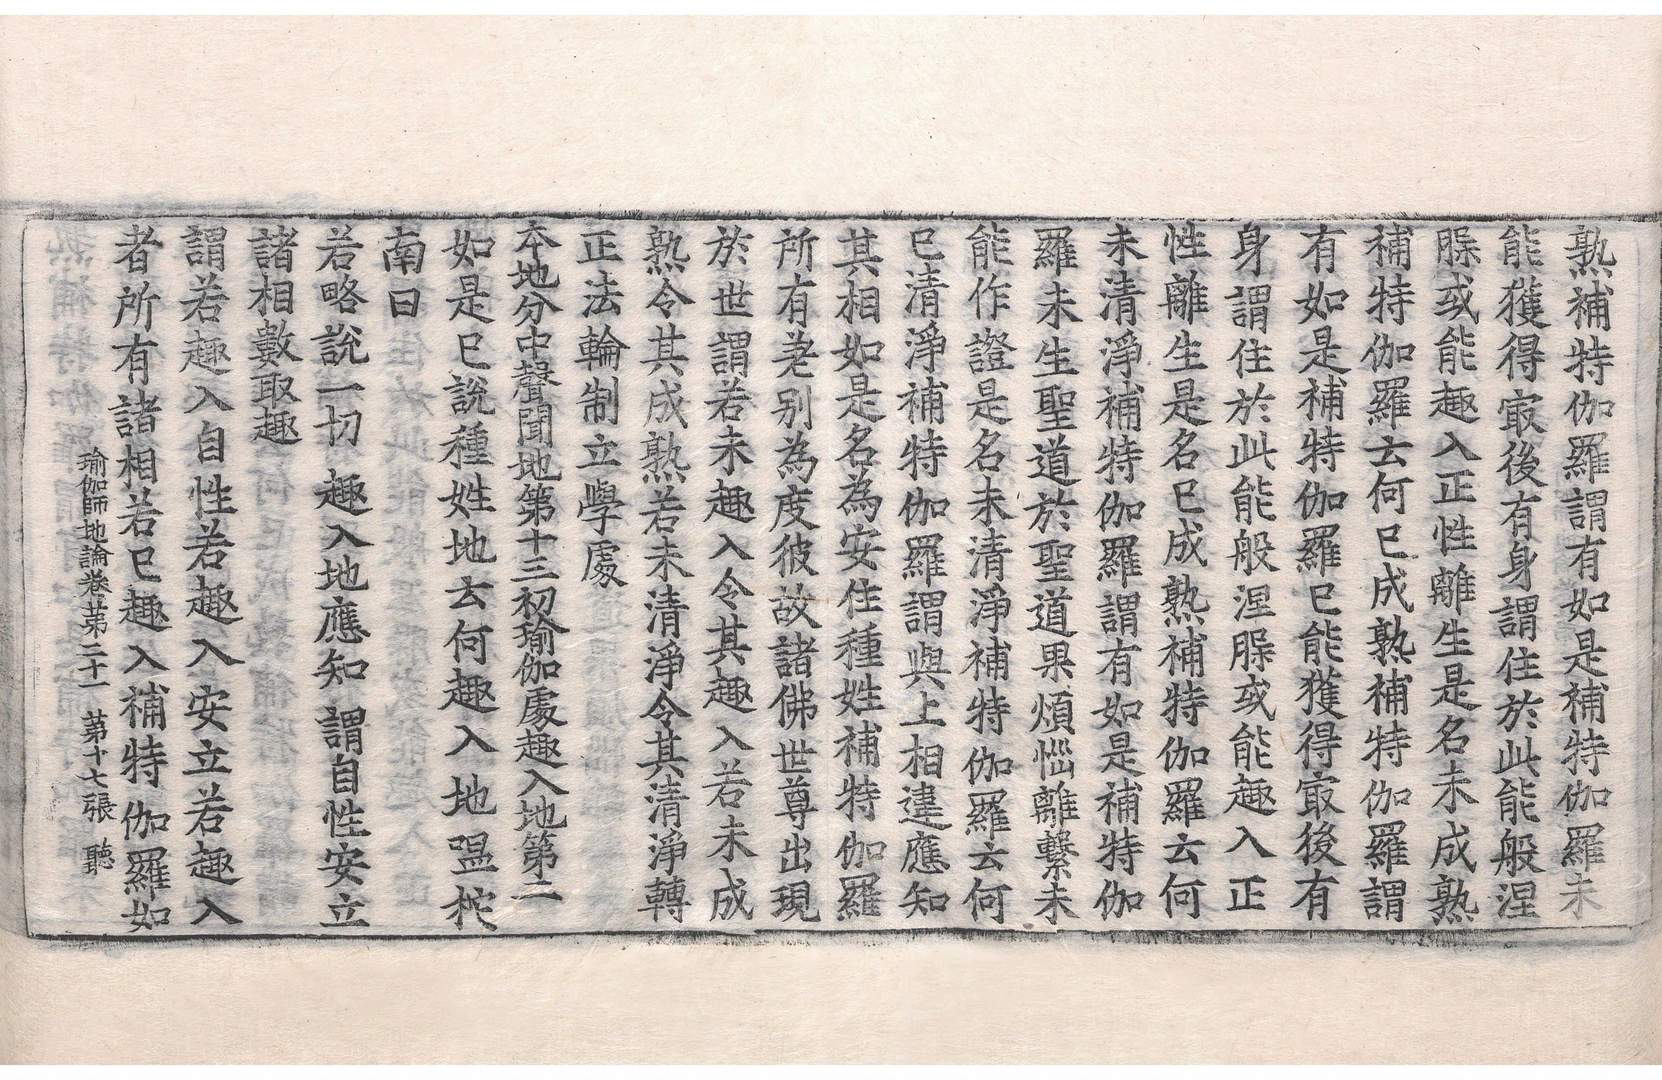 熟補特伽羅謂有如是補特伽羅未
能獲得㝡後有身謂住於此能般涅
脲或能趣入正性離生是名未成熟
補特伽羅云何巳成熟補特伽羅謂
有如是補特伽羅巳能獲得㝡後有
身謂住於此能般涅脲或能趣入正
性離生是名巳成熟補特伽羅云何
未清淨補特伽羅謂有如是補特伽
羅未生聖道於聖道果煩惱離繫未
能作證是名未清淨補特伽羅云何
巳清淨補特伽羅謂與上相違應知
其相如是名為安住種姓補特伽羅
所有差别為度彼故諸佛世尊出現
於世謂若未趣入令其趣入若未成
熟令其成熟若未清淨令其清淨轉
正法輪制立學處
本地分中聲聞地第十三初瑜伽處趣入地第二
如是巳說種姓地云何趣入地嗢柁
南曰
若略說一切 趣入地應知 謂自性安立
諸相數取趣
謂若趣入自性若趣入安立若趣入
者所有諸相若巳趣入補特伽羅如
瑜伽師地論卷苐二十一 苐十七張 聽